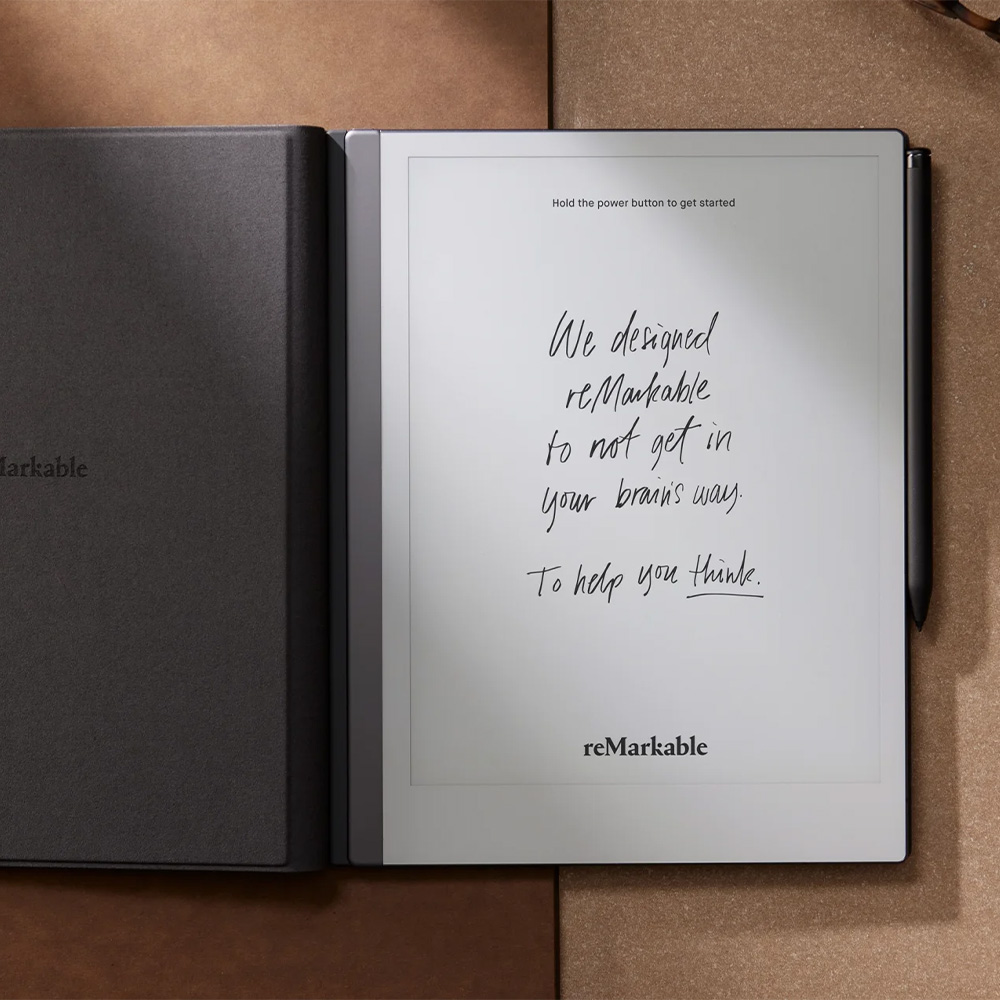 Markable
Hold the power button to get started
We designed
reMarkable
to not get in
your brain's way.
To help you think.
reMarkable